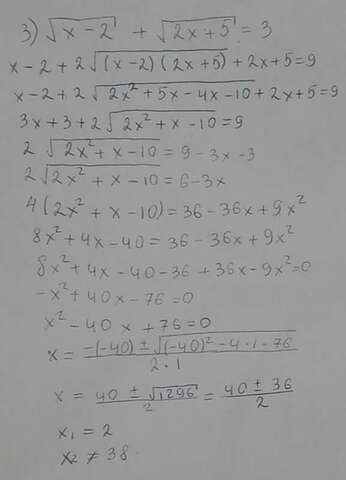 3) √(x-2) + √(2x+5) = 3
x-2+2√((x-2)(2x+5)) + 2x+5=9
x-2+2√(2x²+5x-4x-10) + 2x+5=9
3x+3+2√(2x²+x-10)=9
2√(2x²+x-10) = 9-3x-3
2√(2x²+x-10) = 6-3x
4(2x²+x-10)=36-36x+9x²
8x²+4x-40=36-36x+9x²
8x²+4x-40-36+36x-9x²=0
-x²+40x-76=0
x²-40x+76=0
x = (-(-40) ± √((-40)²-4·1·76))/(2·1)
x = (40 ± √1296)/2 = (40 ± 36)/2
x₁ = 2
x₂ ≠ 38